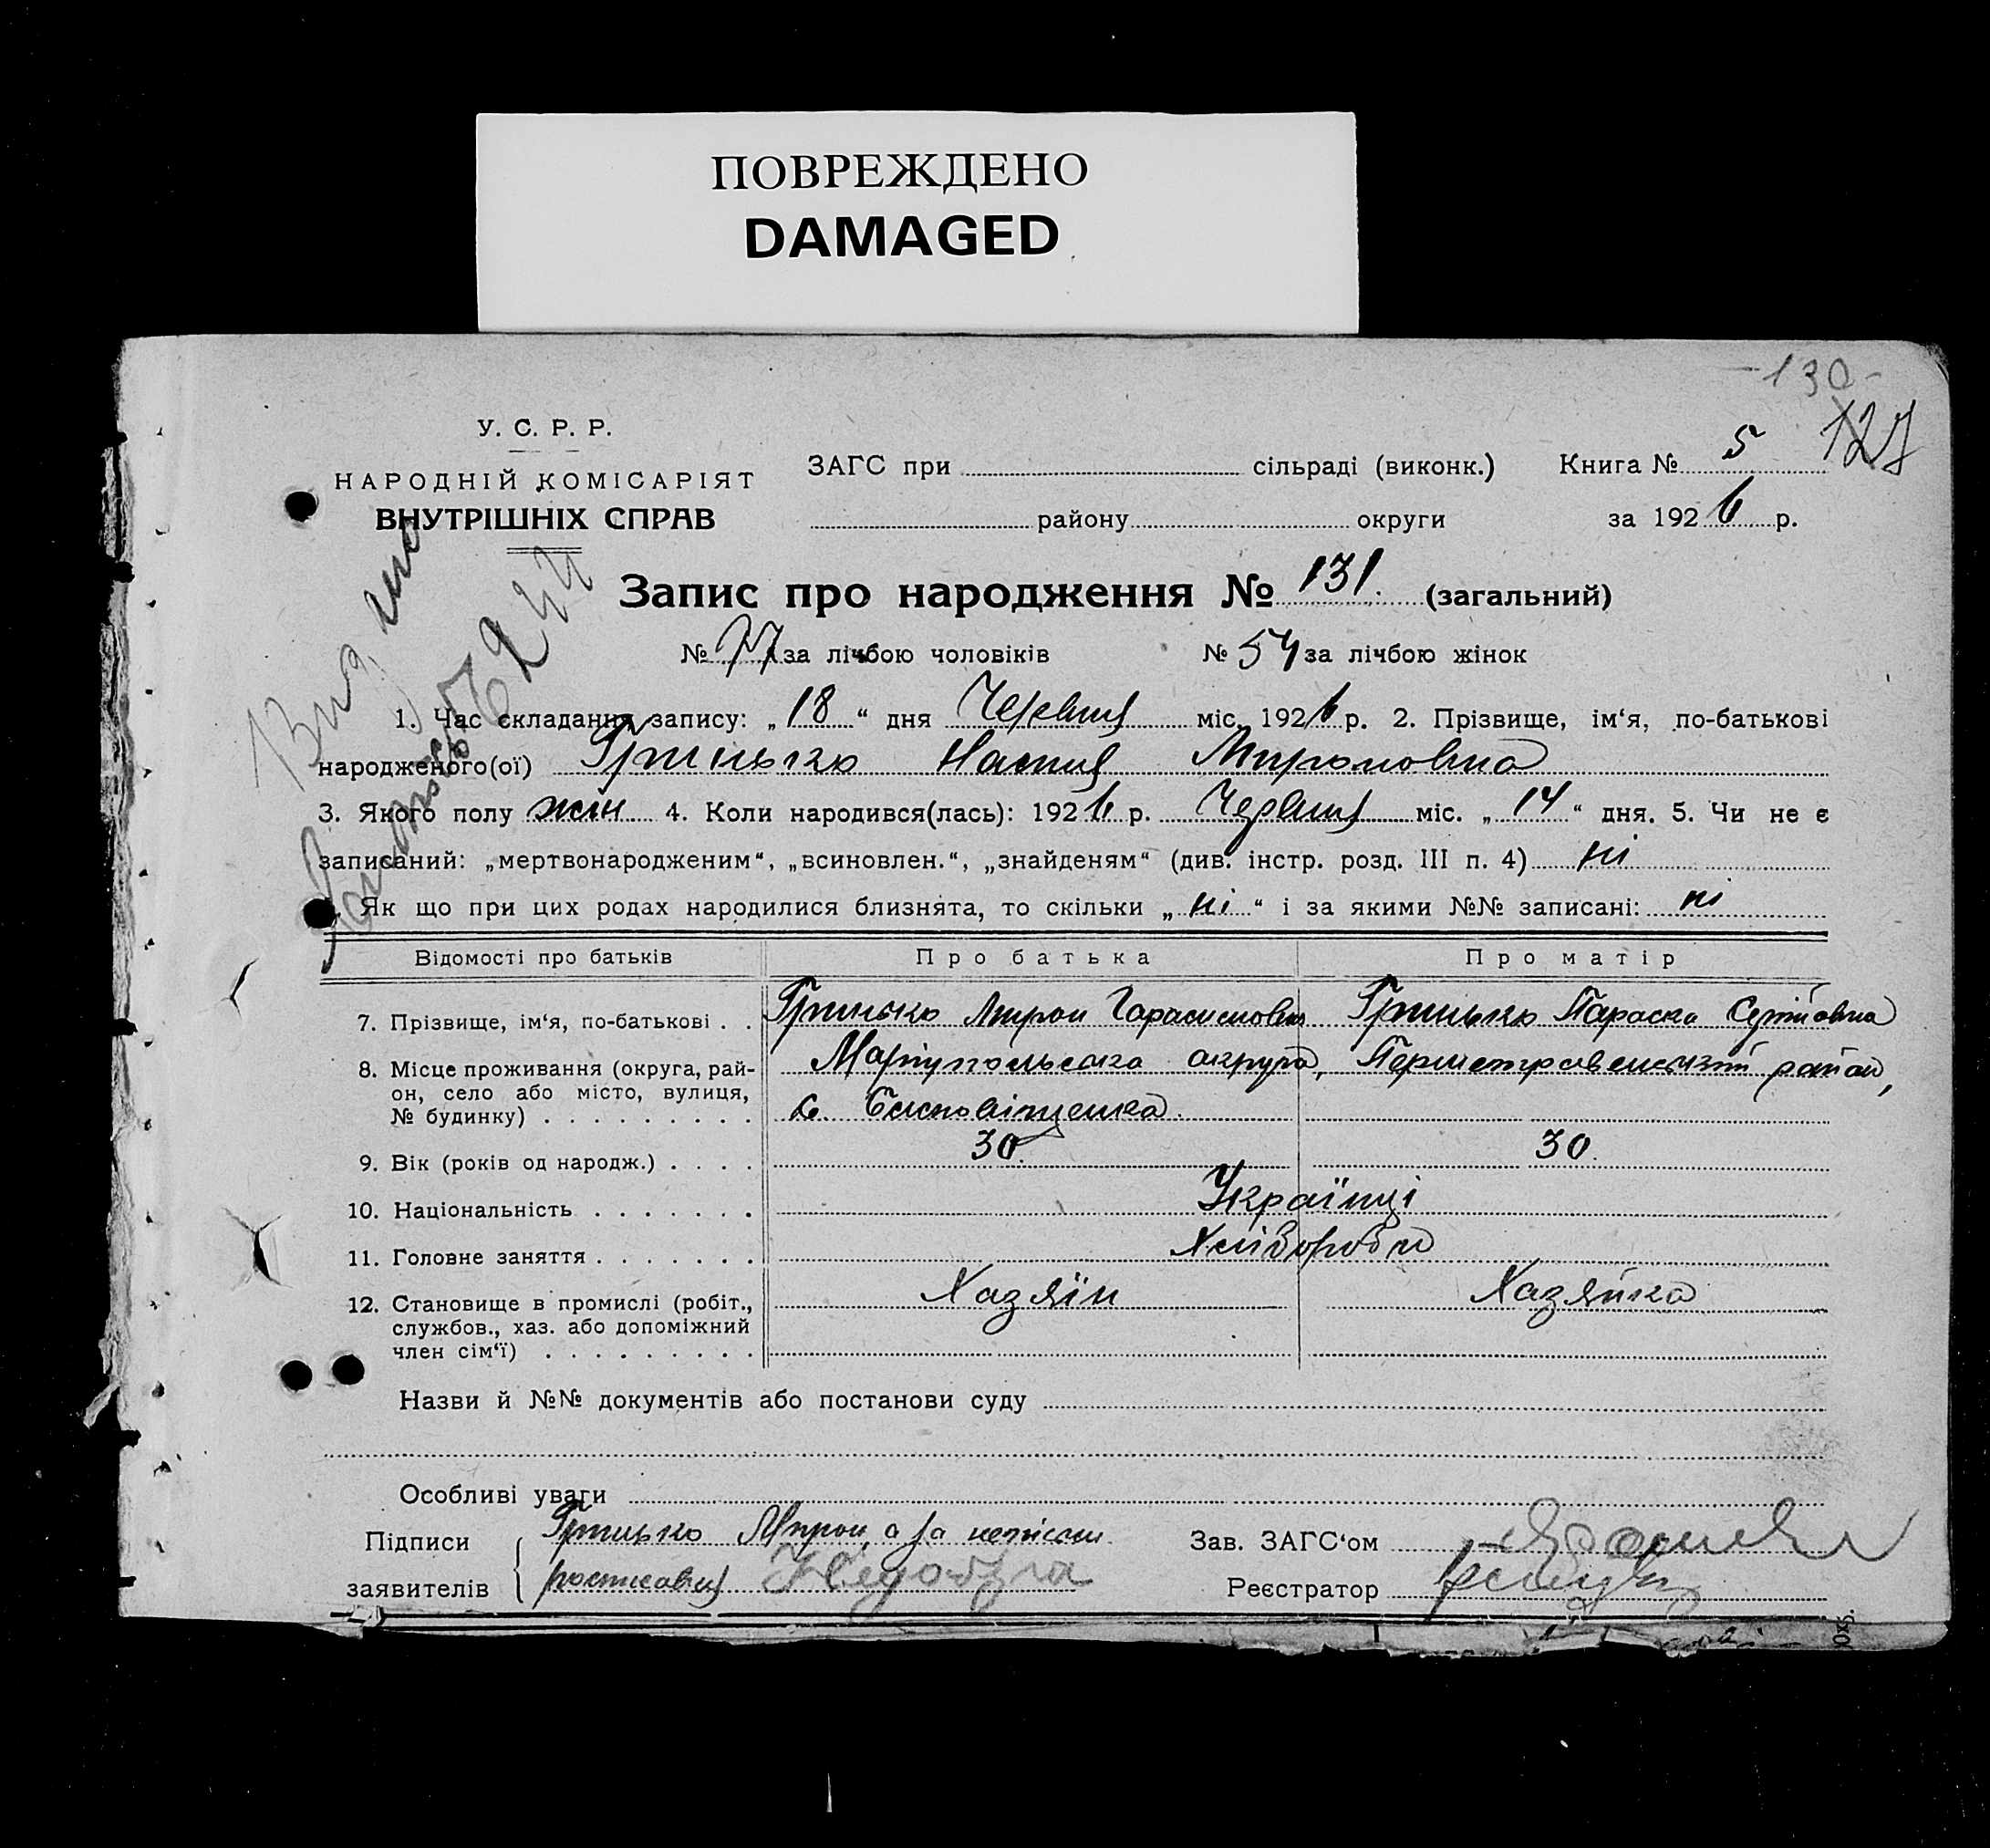 ПОВРЕЖДЕНО
DAMAGED
-130-
127
У. С. Р. Р.
НАРОДНІЙ КОМІСАРІЯТ
ВНУТРІШНІХ СПРАВ
ЗАГС при сільраді (виконк.) Книга № 5
району округи за 1926 р.
Запис про народження № 131. (загальний)
№ 77 за лічбою чоловіків № 54 за лічбою жінок
1. Час складання запису: „18“ дня Червня міс. 1926 р. 2. Прізвище, ім‘я, по-батькові
народженого(ої) Гринько Настя Мироновна
3. Якого полу жін 4. Коли народився(лась): 1926 р. Червня міс. „14“ дня. 5. Чи не є
записаний: „мертвонародженим“, „всиновлен.“, „знайденям“ (див. інстр. розд. III п. 4) ні
Як що при цих родах народилися близнята, то скільки „ні“ і за якими №№ записані: ні
Відомості про батьків Про батька Про матір
7. Прізвище, ім‘я, по-батькові . . Гринько Мирон Гарасимович Гринько Параска Сергіївна
8. Місце проживання (округа, рай- Маріупольська округа, Першетравенський район,
он, село або місто, вулиця,
№ будинку) . . . . . . . . . с.
9. Вік (років од народж.) . . . . 30. 30.
10. Національність . . . . . . . Українці
11. Головне заняття . . . . . . . Хлібороби
12. Становище в промислі (робіт., Хазяїн Хазяйка
службов., хаз. або допоміжний
член сім‘ї) . . . . . . . . .
Назви й №№ документів або постанови суду
Особливі уваги
Підписи Гринько Мирон, а за
заявителів Зав. ЗАГС‘ом
Реєстратор